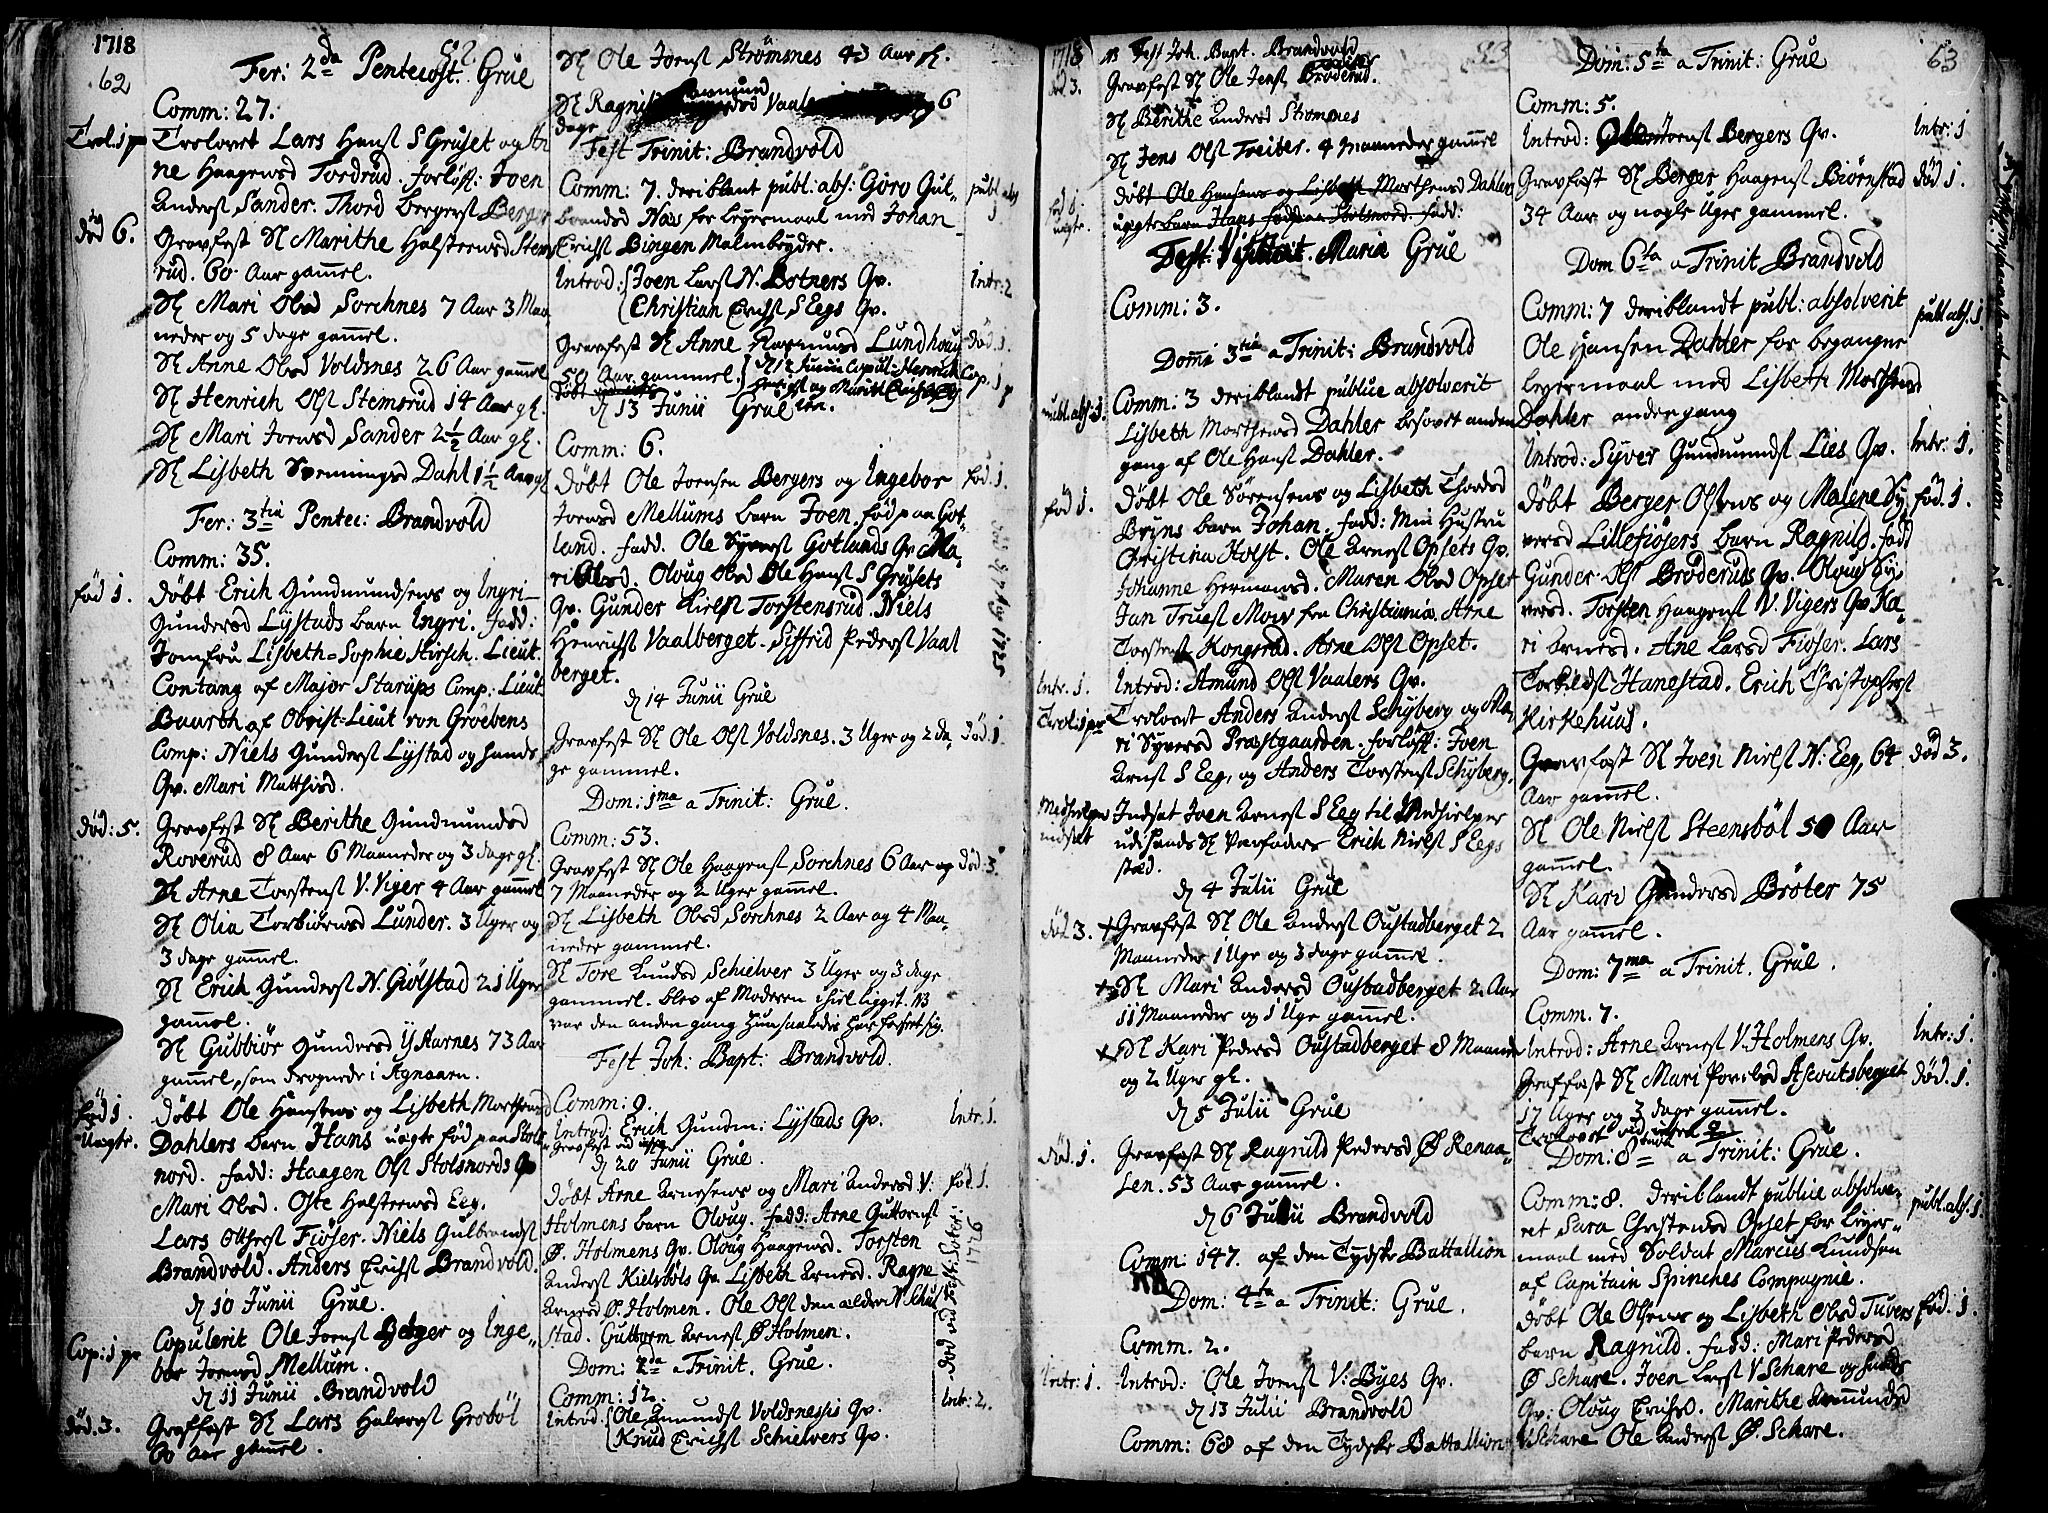 1718
62
Fer: 2da Pentecost. Grue
Comm: 27.
Trol. 1 pr
Trolovet Lars Hanss. S Gruset og An
ne Haagensd Tordrud. forløff: Joen
Anderss Sander. Thord Bergerss Berger
død 6.
Gravfest Sl Marithe Halstensd Stem
rud. 60 Aar gammel.
Sl Mari Olsd Sorchnes 7 Aar 3 Maa
neder og 5 dage gammel.
Sl Anne Olsd Voldsnes 26 Aar gammel
Sl Henrich Olss Stemsrud 14 Aar gl.
Sl Mari Joensd Sander 2 1/2 Aar gl.
Sl Lisbeth Svenningsd Dahl 1 1/2 Aar gl
Fer: 3tia Pentec: Brandvold
Comm: 35.
fød 1.
døbt Erich Gundmundsens og Ingri
Gundersd Lystads barn Ingri. fadd:
Jomfru Lisbeth-Sophie Hirsch. Lieut.
Contang af Major Starups Comp: Lieut
Baarth af Obrist-Lieut von Groebens
Comp: Niels Gunderss Lystad og hands
Qv. Mari Matthisd.
død: 5.
Gravfest Sl Berithe Gundmundsd
Roverud 8 Aar 6 Maaneder og 3 dage gl.
Sl Arne Torstenss V. Viger 4 Aar gammel
Sl Olia Torbiørnsd Lunder. 3 Uger og
3 dage gammel.
Sl Erich Gunderss N. Giølstad 21 Uger
gammel.
Sl Gubbiør Gundersd Y Aarnes 73 Aar
gammel, som druknede i Agnaaen.
fød 1.
Uægte.
døbt Ole Hansens og Lisbeth Morthensd
Dahlers barn Hans uægte fød paa Stols
nord. fadd: Haagen Olss Stolsnords Qv
Mari Olsd. Oste Halstensd Eeg.
Lars Otthess Fiøser. Niels Gulbrandss
Brandvold. Anders Erichss Brandvold.
D 10 Junii Grue.
Cop: 1 pr
Copulerit Ole Joenss Berger og Inge-
bor Joensd Mellum.
D 11 Junii. Brandvold
død. 3.
Graffest Sl Lars Halvorss Grobøl
60 Aar gammel.
Sl Ole Joenss Strømsnes 43 Aar gl.
Sl Ragnil Vaal 6
dage
Fest Trinit: Brandvold
Comm: 7. deriblant publ: abs: Goro Gul-
brandsd Næs for lejermaal med Johan
Erichss Bingen Malmbryder.
publ. abs
1
Introd: Joen Larss N. Botners Qv.
Christian Erichss S Eegs Qv.
Intr: 2
Gravfest Sl Anne Rasmusd Lundhoug
50 Aar gammel.
død. 1.
D 12 Junii Copul: Henrich
Cop. 1 p
D 13 Junii Grue
Comm: 6.
døbt Ole Joensen Bergers og Ingebor
Joensd Mellums barn Joen. fød paa Got-
land. fadd. Ole Syverss Gotlands Qv Ma-
ri Olsd. Oloug Olsd Ole Hanss S Grusets
Qv. Gunder Kielss Torstensrud. Niels
Henrichss Vaalberget. Siffrid Pederss Vaal
berget.
fød. 1.
D 14 Junii Grue
Gravfest Sl Ole Olss Voldsnes. 3 Uger og 2 da-
ge gammel.
død. 1.
Dom: 1ma a Trinit: Grue.
Comm: 53.
Gravfest Sl Ole Haagenss Sorchnes 6 Aar og
7 Maaneder og 2 Uger gammel.
død. 3.
Sl Lisbeth Olsd Sorchnes 2 Aar og 4 Maa-
neder gammel.
Sl Tore Knudsd Schielver 3 Uger og 3 dage
gammel. blev af Moderen ihiel ligget. NB
var den anden gang hun saaledis har forseet sig.
Fest Joh: Bapt: Brandvold.
Comm: 9.
Introd: Erich Gundm: Lystads Qv.
Intr. 1
D 20 Junii Grue.
døbt Arne Arnesens og Mari Andersd V:
Holmens barn Oloug. fadd: Arne Guttormss
Ø. Holmens Qv. Oloug Haagensd. Torsten
Anderss Kielsbøls Qv. Lisbeth Arnesd. Ragne
Arnesd Ø. Holmen. Ole Olss den ældre N Schul
stad. Guttorm Arness Ø Holmen.
fød. 1.
Dom: 2da a Trinit. Grue.
Comm: 12.
Introd. Ole Amundss Voldsness Qv.
Knud Erichss Schielvers Qv.
Intr: 2.
1718
NB Fest Joh. Bapt. Brandvold
død 3.
Gravfest Sl Ole Jenss Brøderud.
Sl Berithe Andersd Strømnes
Sl Jens Olss Treiter. 4 Maaneder gammel
døbt Ole Hansens og Lisbeth Morthensd Dahlers
uægte barn Hans fød paa Stolsnord. fadd:
fød 1.
uægte.
Fest: Visitat. Mariæ Grue
Comm: 3.
Dom: 3tia a Trinit: Brandvold
publ. abs: 1.
Comm: 3 deriblandt publice absolverit
Lisbeth Morthensd Dahler besovet anden
gang af Ole Hanss Dahler.
fød 1.
døbt Ole Sørensens og Lisbeth Thordsd
Bryns barn Johan. fadd: Min Hustru
Christina Holst. Ole Arness Opsets Qv.
Johanne Hermansd. Maren Olsd Opset
Jan Truess Mow fra Christiania. Arne
Torstenss Kongsrud. Arne Olss Opset.
Intr. 1.
Introd: Amund Olss Vaalers Qv.
Trol. 1 pr
Trolovet Anders Anderss Schyberg og Ma-
ri Syversd Præstgaarden. forløff: Joen
Arness S Eeg, og Anders Torstenss Schyberg.
Medhielper
indsat
Indsat Joen Arness S Eeg til Medhielper
udi hands Sl Værfaders Erich Nielss S Eegs
sted.
D 4 Julii Grue
død 3.
Gravfest Sl Ole Anderss Oustadberget 2
Maaneder 1 Uge og 3 dage gammel.
Sl Mari Andersd Oustadberget 2 Aar
11 Maaneder og 1 Uge gammel.
Sl Kari Pedersd Oustadberget 8 Maaneder
og 2 Uger gl.
D 5 Julii Grue
død. 1.
Gravfest Sl Ragnild Pedersd Ø Renaa-
sen. 53 Aar gammel.
D 6 Julii Brandvold
Comm: 147. af den Tydske Battallion
Dom: 4ta a Trinit: Grue.
Comm. 2.
Intr: 1.
Introd: Ole Joenss V: Byes Qv.
D 13 Julii Brandvold
Comm: 68 af den Tydske Battallion
Dom: 5ta a Trinit: Grue
63
Comm: 5.
Introd: Joenss Bergers Qv.
Intr: 1
Gravfest Sl Berger Haagenss Biørnstad
34 Aar og nogle Uger gammel.
død 1.
Dom 6ta a Trinit Brandvold
Comm: 7 deriblandt publ: absolverit
Ole Hansen Dahler for begangen
lejermaal med Lisbeth Morthensd
Dahler anden gang
publ. abs. 1
Introd: Syver Gundmundss Lies Qv.
Intr: 1.
døbt Berger Olsens og Malene Sy-
versd Lillefiøsers barn Ragnild. fadd
Gunder Olss Brøderuds Qv. Oloug Sy-
versd. Torsten Haagenss N. Vigers Qv Ka-
ri Arnesd. Ane Larsd Fiøser. Lars
Torkildss Hanestad. Erich Christopherss
Kirkehuus.
fød. 1.
Gravfest Sl Joen Nielss N: Eeg, 64
Aar gammel.
død 3.
Sl Ole Nielss Steensbøl 50 Aar
gammel.
Sl Kari Gundersd Brøter 75
Aar gammel.
Dom: 7ma a Trinit. Grue.
Comm. 7.
Introd: Arne Arness V. Holmens Qv.
Intr: 1.
Graffest Sl Mari Povelsd Ascoutsberget
17 Uger og 3 dage gammel.
død. 1.
Dom: 8va a Trinit: Grue.
Comm: 8. deriblandt publice absolve-
ret Sara Christensd Opset for lejer-
maal med Soldat Marcus Knudsen
af Capitain Spinches Compagnie.
publ. abs. 1.
døbt Ole Olsens og Lisbeth Olsd Tuvers
barn Ragnild. fadd: Mari Pedersd
Ø Schare. Joen Larss V Schare og hands
Qv: Oloug Erichsd. Marithe Amundsd
V. Schare Ole Anderss Ø. Schare.
fød. 1.